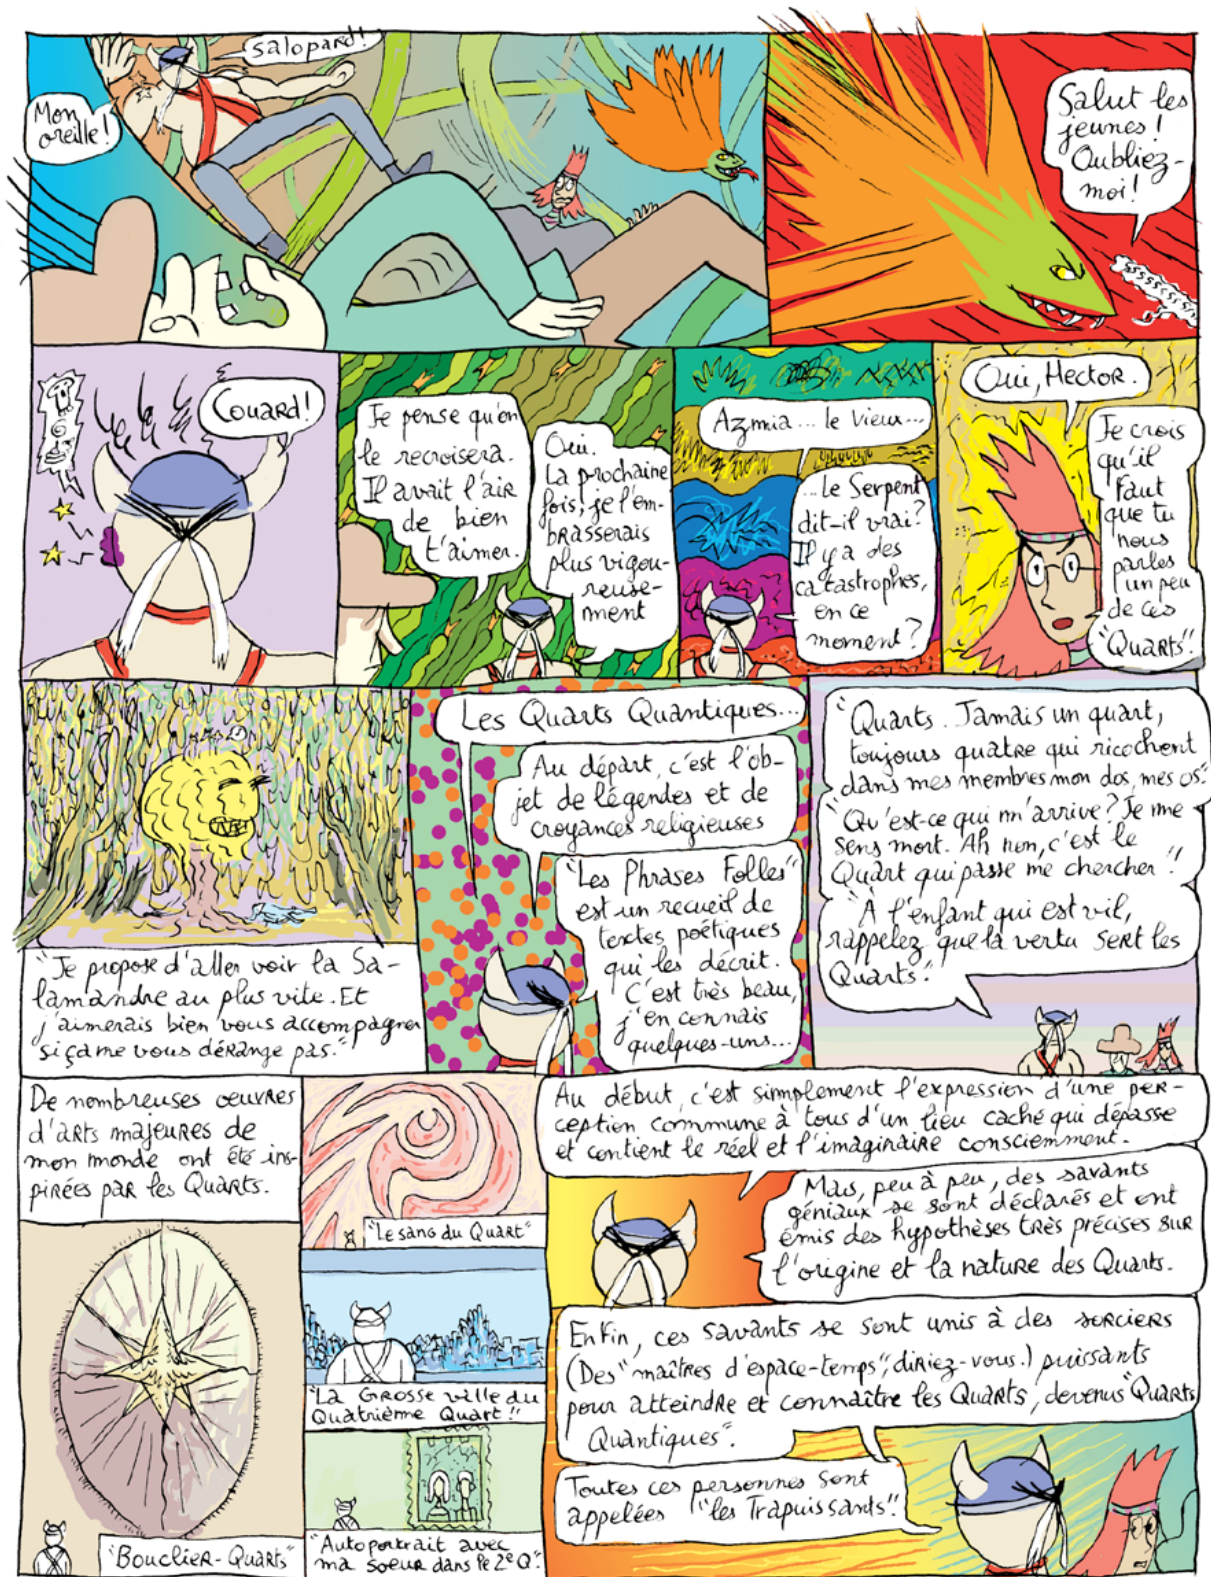 Salopard!
Mon
oreille!
Salut les
jeunes!
Oubliez-
moi!
Couard!
Je pense qu'on
le recroisera.
Il avait l'air
de bien
t'aimer.
Oui.
La prochaine
fois, je l'em-
brasserais
plus vigou-
reuse-
ment
Azmia... le vieux...
...le Serpent
dit-il vrai?
Il y a des
catastrophes,
en ce
moment?
Oui, Hector.
Je crois
qu'il
faut
que tu
nous
parles
un peu
de ces
"Quarts".
"Je propose d'aller voir la Sa-
lamandre au plus vite. Et
j'aimerais bien vous accompagner
si ça me vous dérange pas."
Les Quarts Quantiques...
Au départ, c'est l'ob-
jet de légendes et de
croyances religieuses
"Les Phrases Folles"
est un recueil de
textes poétiques
qui les décrit.
C'est très beau,
j'en connais
quelques-uns...
"Quarts. Jamais un quart,
toujours quatre qui ricochent
dans mes membres mon dos, mes os."
"Qu'est-ce qui m'arrive? Je me
sens mort. Ah non, c'est le
Quart qui passe me chercher!"
"À l'enfant qui est vil,
rappelez que la vertu sert les
Quarts."
De nombreuses œuvres
d'arts majeures de
mon monde ont été ins-
pirées par les Quarts.
"Bouclier-Quarts"
"Le sang du Quart"
"La Grosse ville du
Quatrième Quart".
"Autoportrait avec
ma soeur dans le 2e Q".
Au début, c'est simplement l'expression d'une per-
ception commune à tous d'un lieu caché qui dépasse
et contient le réel et l'imaginaire consciemment.
Mais, peu à peu, des savants
géniaux se sont déclarés et ont
émis des hypothèses très précises sur
l'origine et la nature des Quarts.
Enfin, ces savants se sont unis à des sorciers
(Des "maîtres d'espace-temps", diriez-vous.) puissants
pour atteindre et connaître les Quarts, devenus "Quarts
Quantiques".
Toutes ces personnes sont
appelées "les Trapuissants".